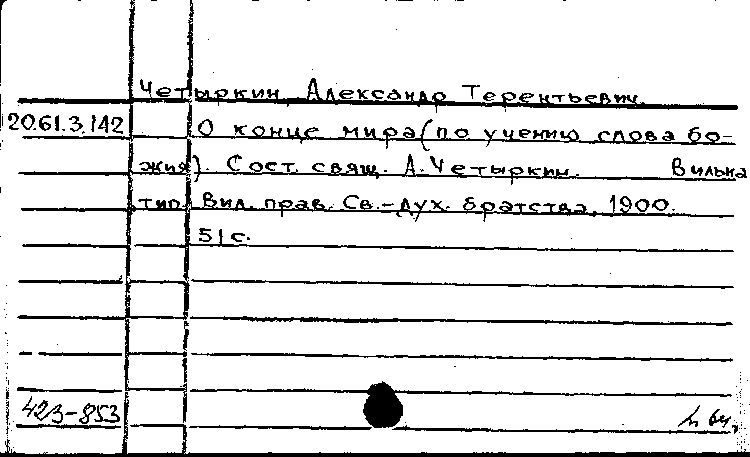 Четыркин, Александр Терентьевич.
20.61.3.142 О конце мира (по учению слова бо-
жия). Сост. свящ. А. Четыркин. Вильна
тип. Вил. прав. Св.-Дух. братства, 1900.
51 с.
423-853